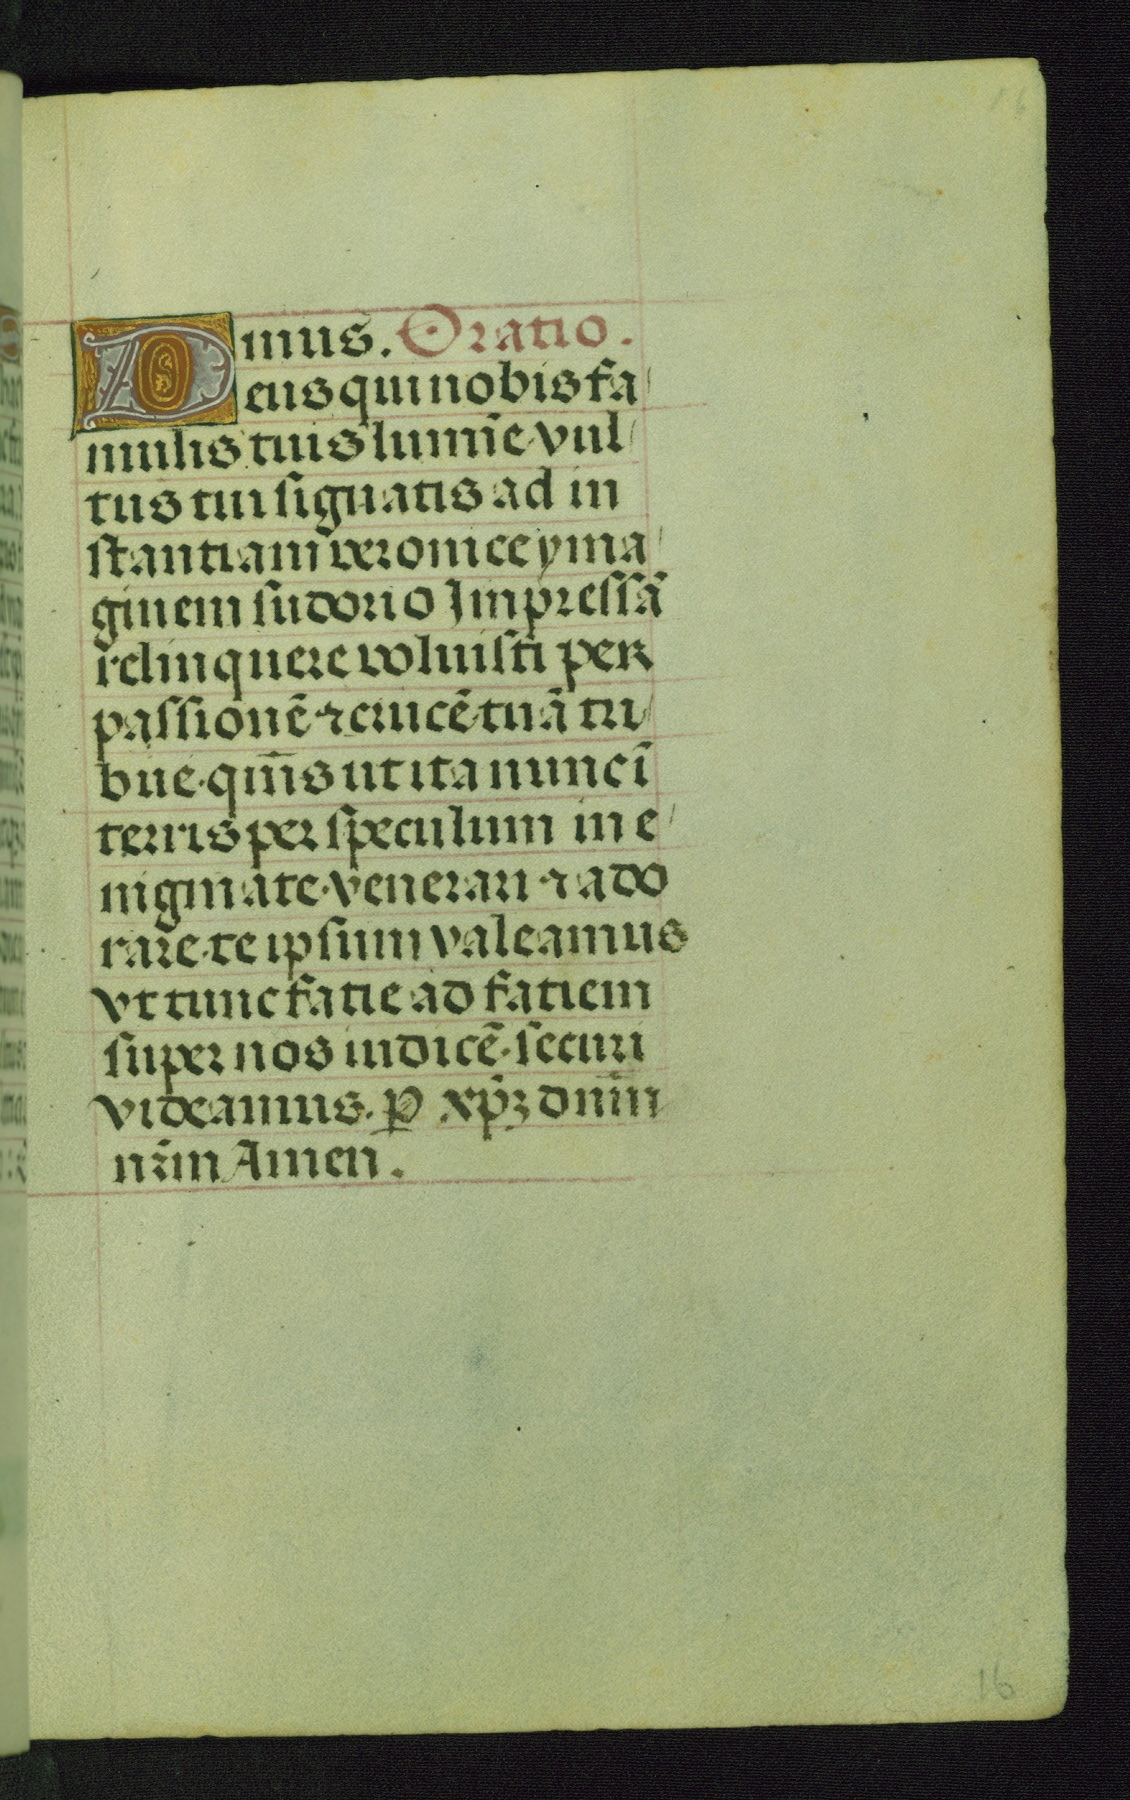 mus. Oratio.
Deus qui nobis fa
mulis tuis lumīe vul
tus tui signatis ad in
stantiam veronice yma
ginem sudorio Impressā
relinquere voluisti per
passionē ⁊ crucē tuā tri
bue qm̄s ut ita nunc ī
terris per speculum in e
nigmate venerari ⁊ ado
rare te ipsum valeamus
vt tunc fatie ad fatiem
super nos iudicē securi
videamus. ꝑ xp̄ꝫ dnm̄
nr̄m Amen.
16
16